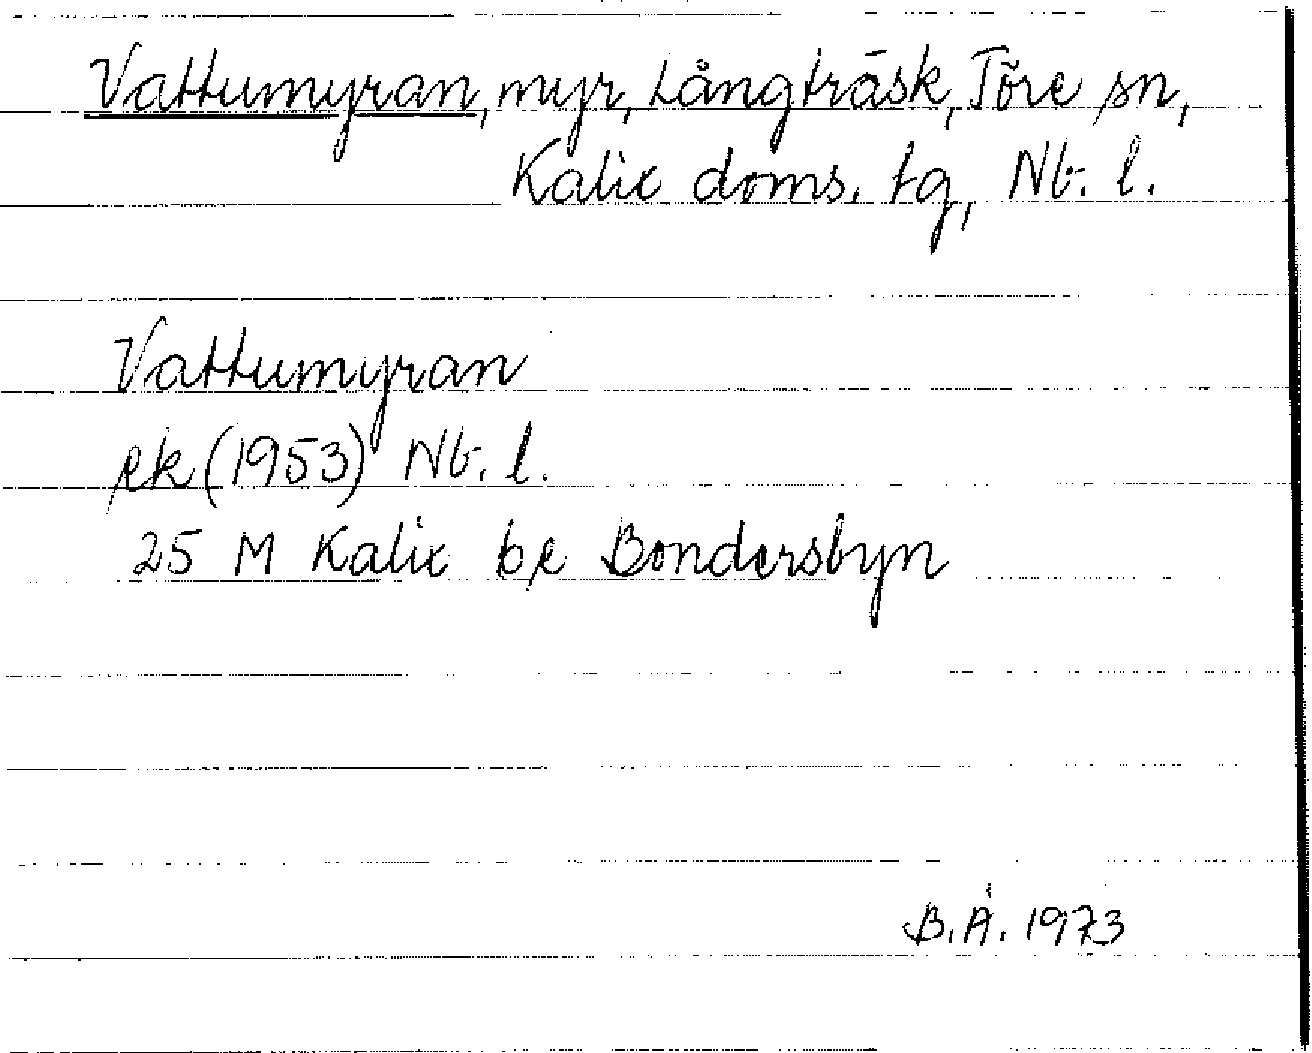 Vattumyran, myr, Långträsk, Töre sn,
Kalix doms. tg, Nb. l.
Vattumyran
ek (1953) Nb. l.
25 M Kalix be Bondersbyn
B.Å. 1973